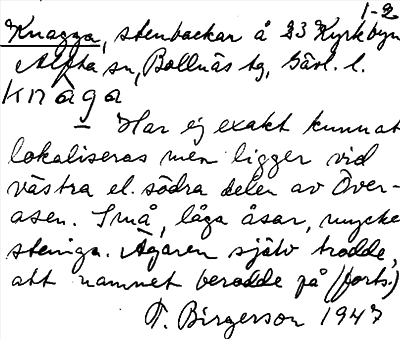 1-2
Knagga, stenbackar å 23 Kyrkbyn
Alfta sn, Bollnäs tg, Gävl. l.
knaga
— Har ej exakt kunnat
lokaliseras men ligger vid
västra el. södra delen av Över-
åsen. Små, låga åsar, mycket
steniga. Ägaren själv trodde,
att namnet berodde på (forts.)
T. Birgerson 1947